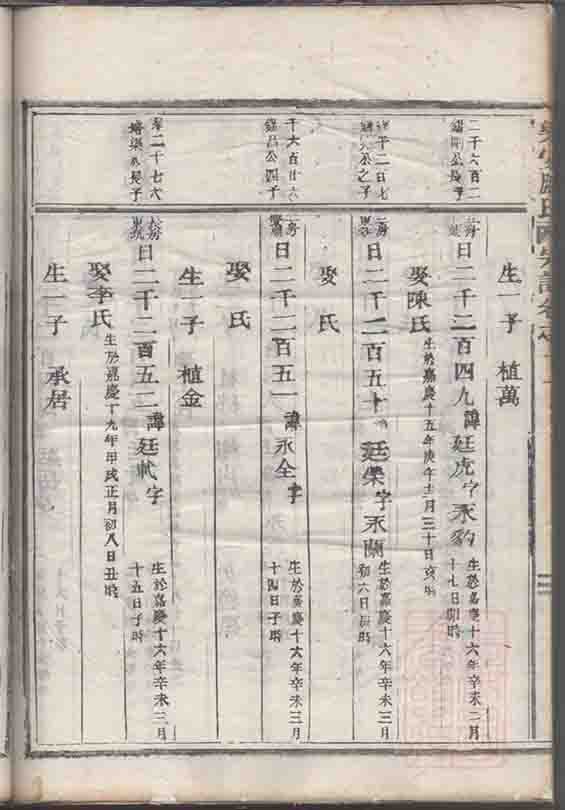 生一子 植萬
二千六百二
日二千二百四九 諱廷虎 字永豹
生於嘉慶十六年辛未二月
十七日 時
娶陳氏
生於嘉慶十五年庚午十二月三十日亥時
日二千二百五十 諱廷榮 字永蘭
生於嘉慶十六年辛未三月
初六日 時
娶 氏
千六百廿六
紹呂公四子
日二千二百五一 諱永全 字
生於嘉慶十六年辛未三月
十四日子時
娶 氏
生一子 植金
二千七六
培樂公長子
日二千二百五二 諱廷軾 字
生於嘉慶十六年辛未三月
十五日子時
娶李氏
生於嘉慶十九年甲戌正月初八日丑時
生一子 承居